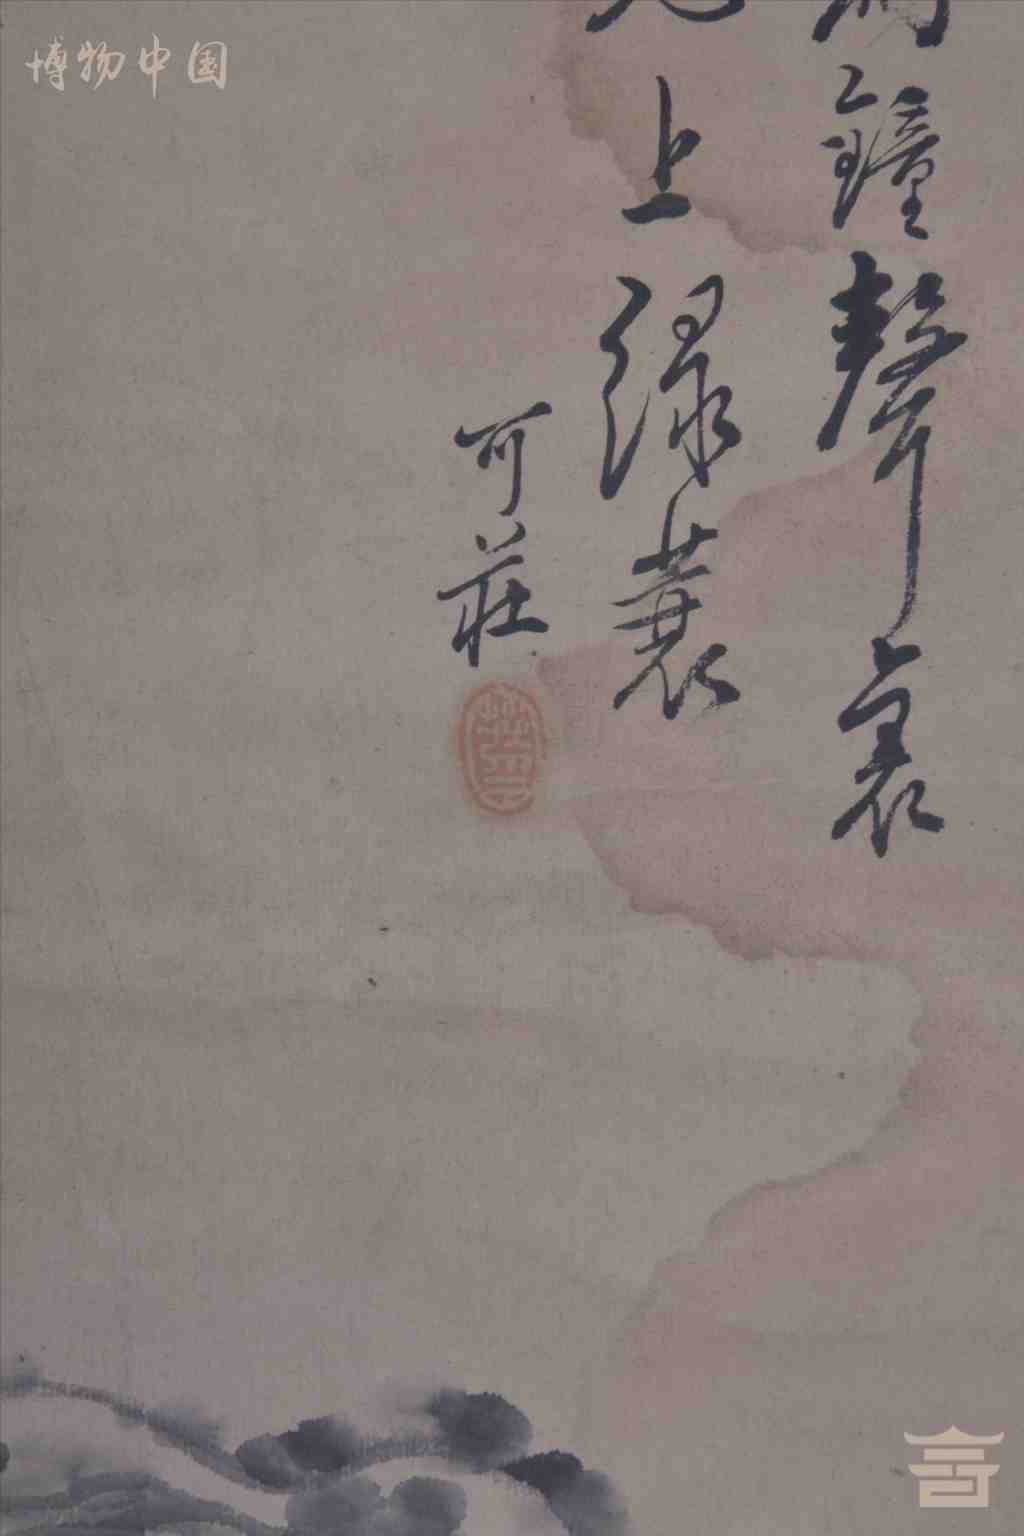 博物中国
鐘聲裏
上綠蓑
可莊